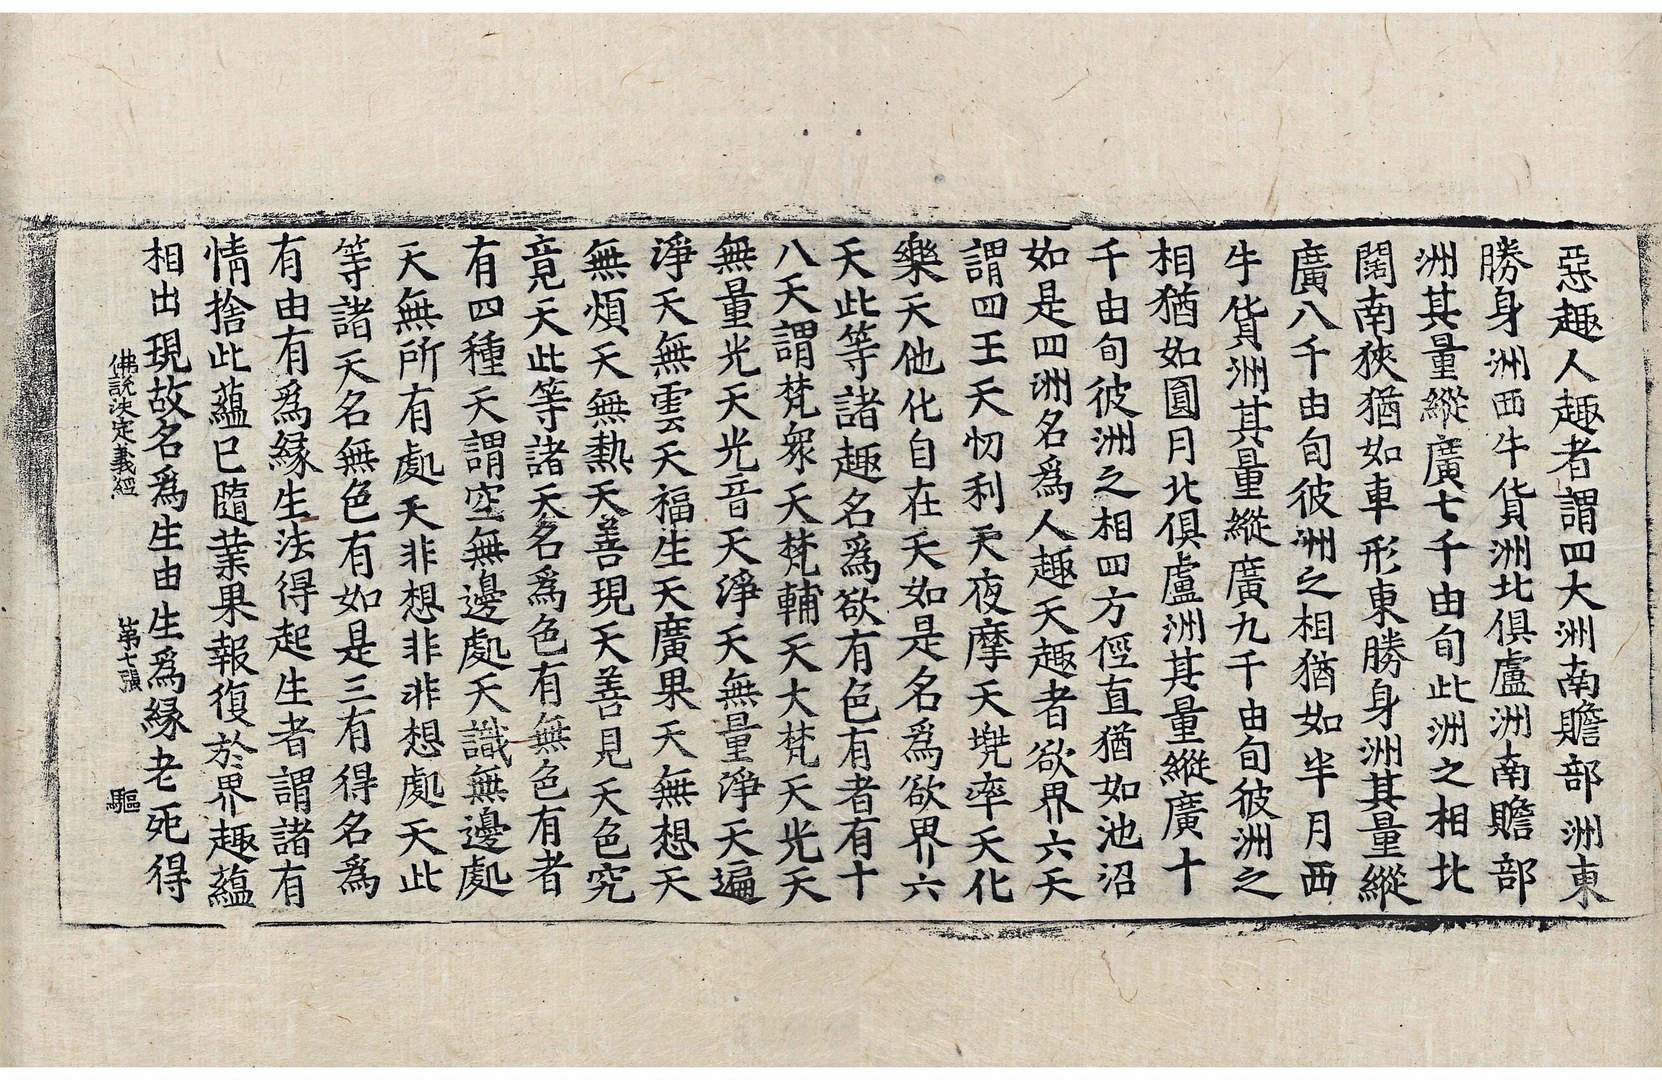 惡趣人趣者謂四大洲南贍部洲東
勝身洲西牛貨洲北俱盧洲南贍部
洲其量縱廣七千由旬此洲之相北
闊南狹猶如車形東勝身洲其量縱
廣八千由旬彼洲之相猶如半月西
牛貨洲其量縱廣九千由旬彼洲之
相猶如圓月北俱盧洲其量縱廣十
千由旬彼洲之相四方俓直猶如池沼
如是四洲名爲人趣天趣者欲界六天
謂四王天忉利天夜摩天兠率天化
樂天他化自在天如是名爲欲界六
天此等諸趣名爲欲有色有者有十
八天謂梵衆天梵輔天大梵天光天
無量光天光音天淨天無量淨天遍
淨天無雲天福生天廣果天無想天
無煩天無熱天善現天善見天色究
竟天此等諸天名爲色有無色有者
有四種天謂空無邊處天識無邊處
天無所有處天非想非非想處天此
等諸天名無色有如是三有得名爲
有由有爲縁生法得起生者謂諸有
情捨此蘊已隨業果報復於界趣蘊
相出現故名爲生由生爲縁老死得
佛説決定義經 第七張 驅